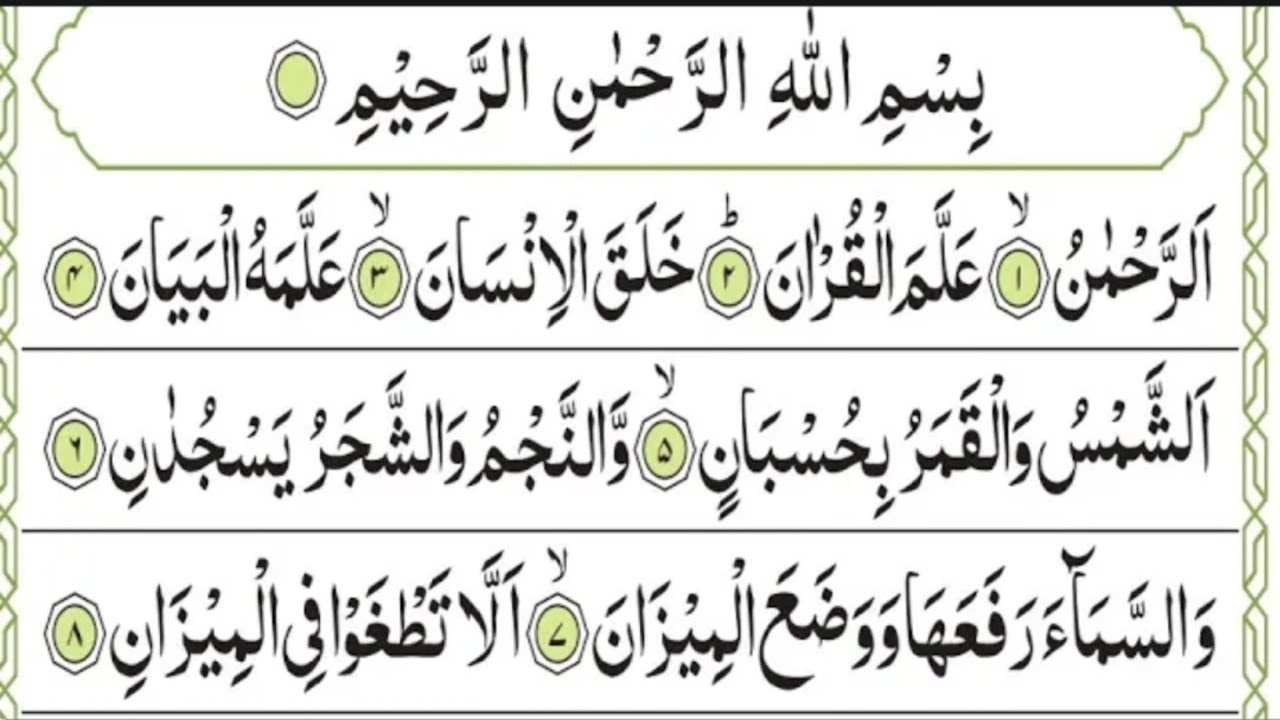 بِسْمِ اللّٰهِ الرَّحْمٰنِ الرَّحِيْمِ
اَلرَّحْمٰنُ ۙ۱ عَلَّمَ الْقُرْاٰنَ ؕ۲ خَلَقَ الْاِنْسَانَ ۙ۳ عَلَّمَهُ الْبَيَانَ ۴
اَلشَّمْسُ وَالْقَمَرُ بِحُسْبَانٍ ۙ۵ وَّالنَّجْمُ وَالشَّجَرُ يَسْجُدٰنِ ۶
وَالسَّمَآءَ رَفَعَهَا وَوَضَعَ الْمِيْزَانَ ۙ۷ اَلَّا تَطْغَوْا فِى الْمِيْزَانِ ۸